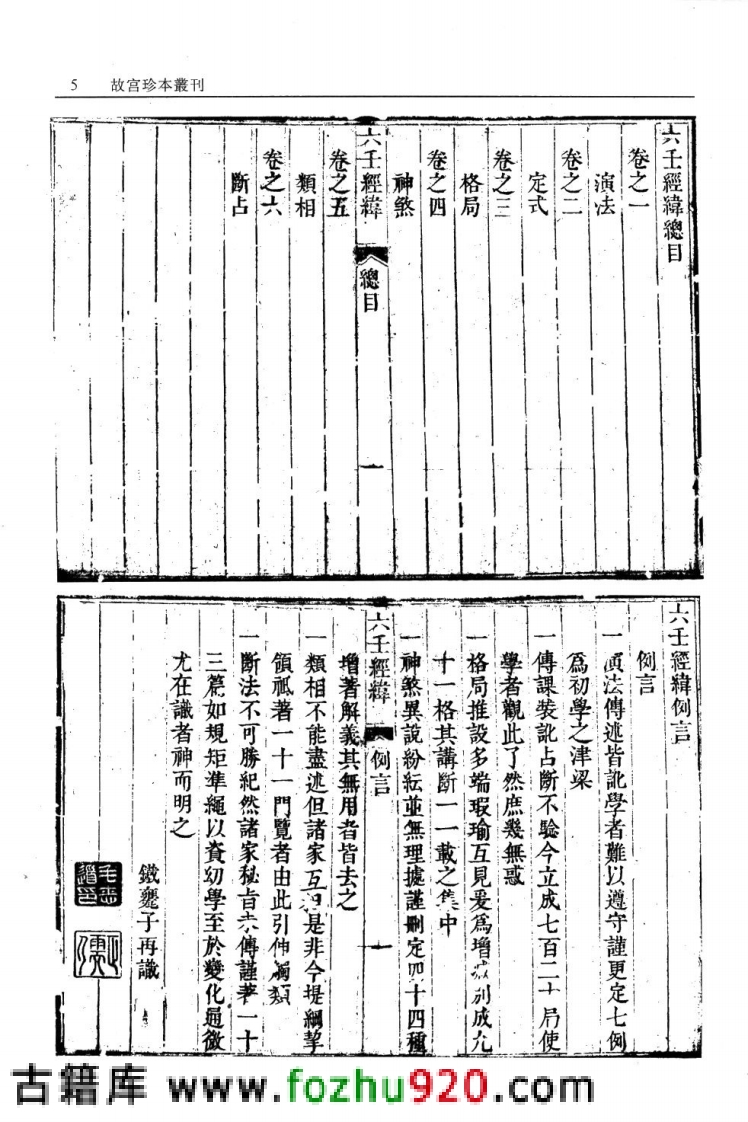 5 故宫珍本叢刊
六壬經緯總目
卷之一
演法
卷之二
定式
卷之三
格局
卷之四
神煞
六壬經緯 總目 一
卷之五
類相
卷之六
斷占
六壬經緯例言
例言
一演法傳述皆訛學者難以遵守謹更定七例
爲初學之津梁
一傳課裝訛占斷不驗今立成七百二十局使
學者觀此了然庶幾無惑
一格局推設多端瑕瑜互見爰爲增減別成九
十一格其講斷一一載之集中
一神煞異說紛紜並無理據謹刪定四十四種
六壬經緯 例言 一
增著解義其無用者皆去之
一類相不能盡述但諸家互相是非今提綱挈
領祇著一十一門覽者由此引伸觸類
一斷法不可勝紀然諸家秘旨未傳謹著一十
三篇如規矩準繩以資幼學至於變化通微
尤在識者神而明之
鐵甕子再識
古籍库 www.fozhu920.com